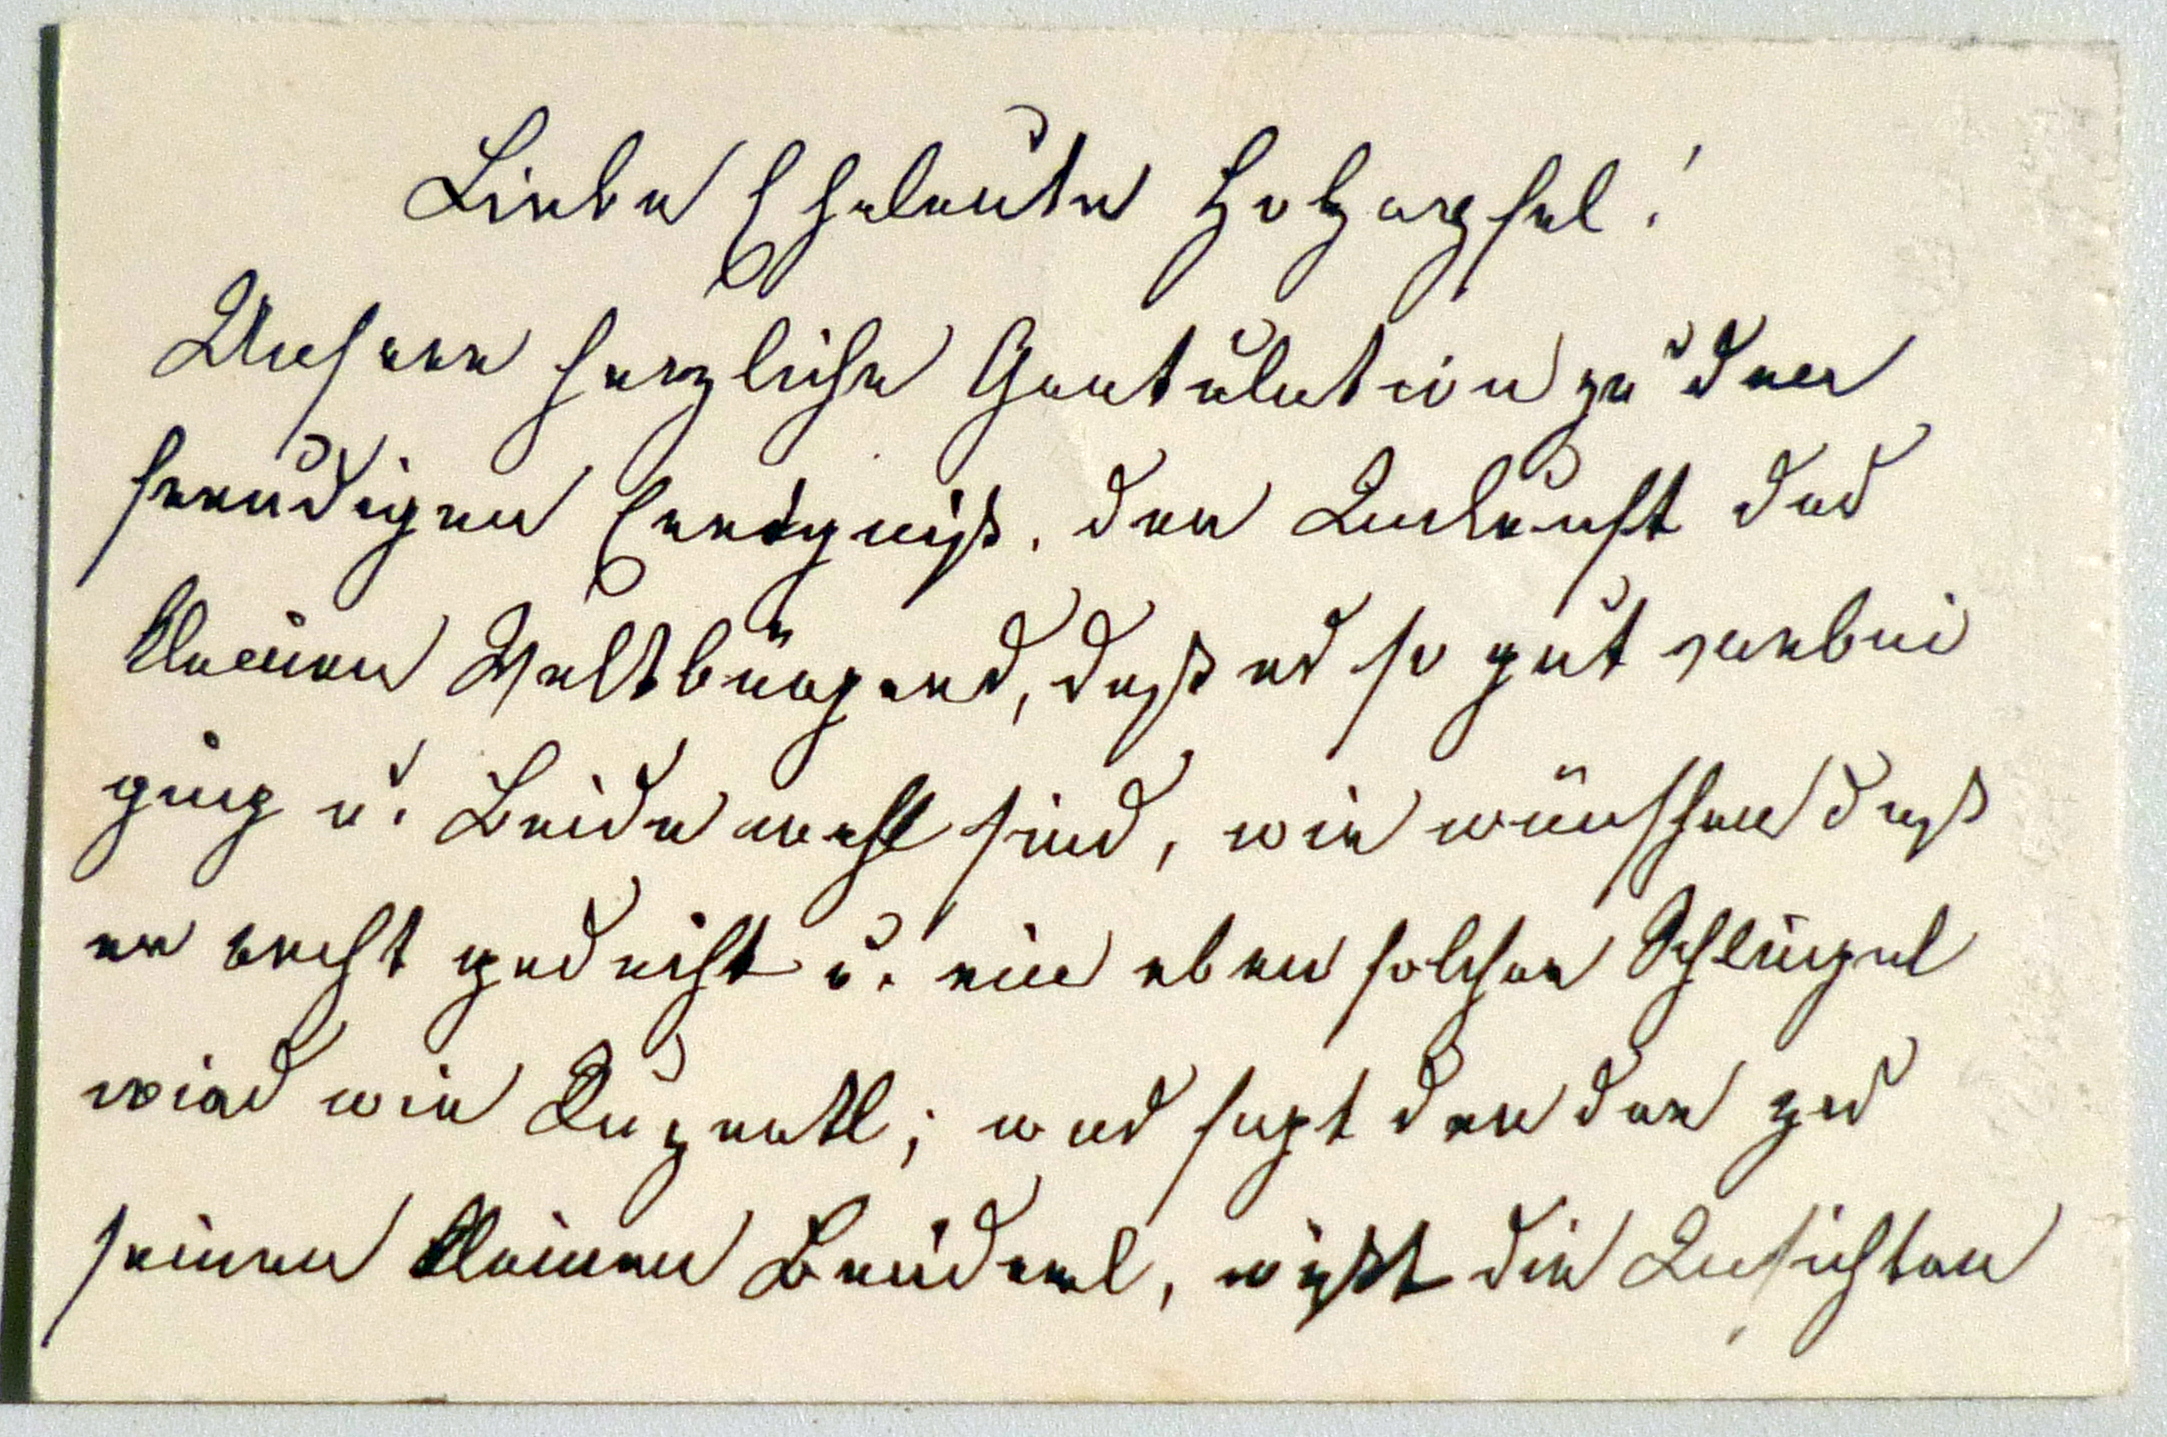 Liebe Eheleute Holzapfel!
Unsere herzliche Gratulation zu dem
freudigen Ereigniß, der Ankunft des
kleinen Weltbürgers, daß es so gut vorbei
ging u. Beide wohl sind, wir wünschen daß
er recht gedeiht u. ein eben solcher Schlingel
wird wie; was sagt denn der zu
seinen kleinen Bruderl, wißt die Ansichten